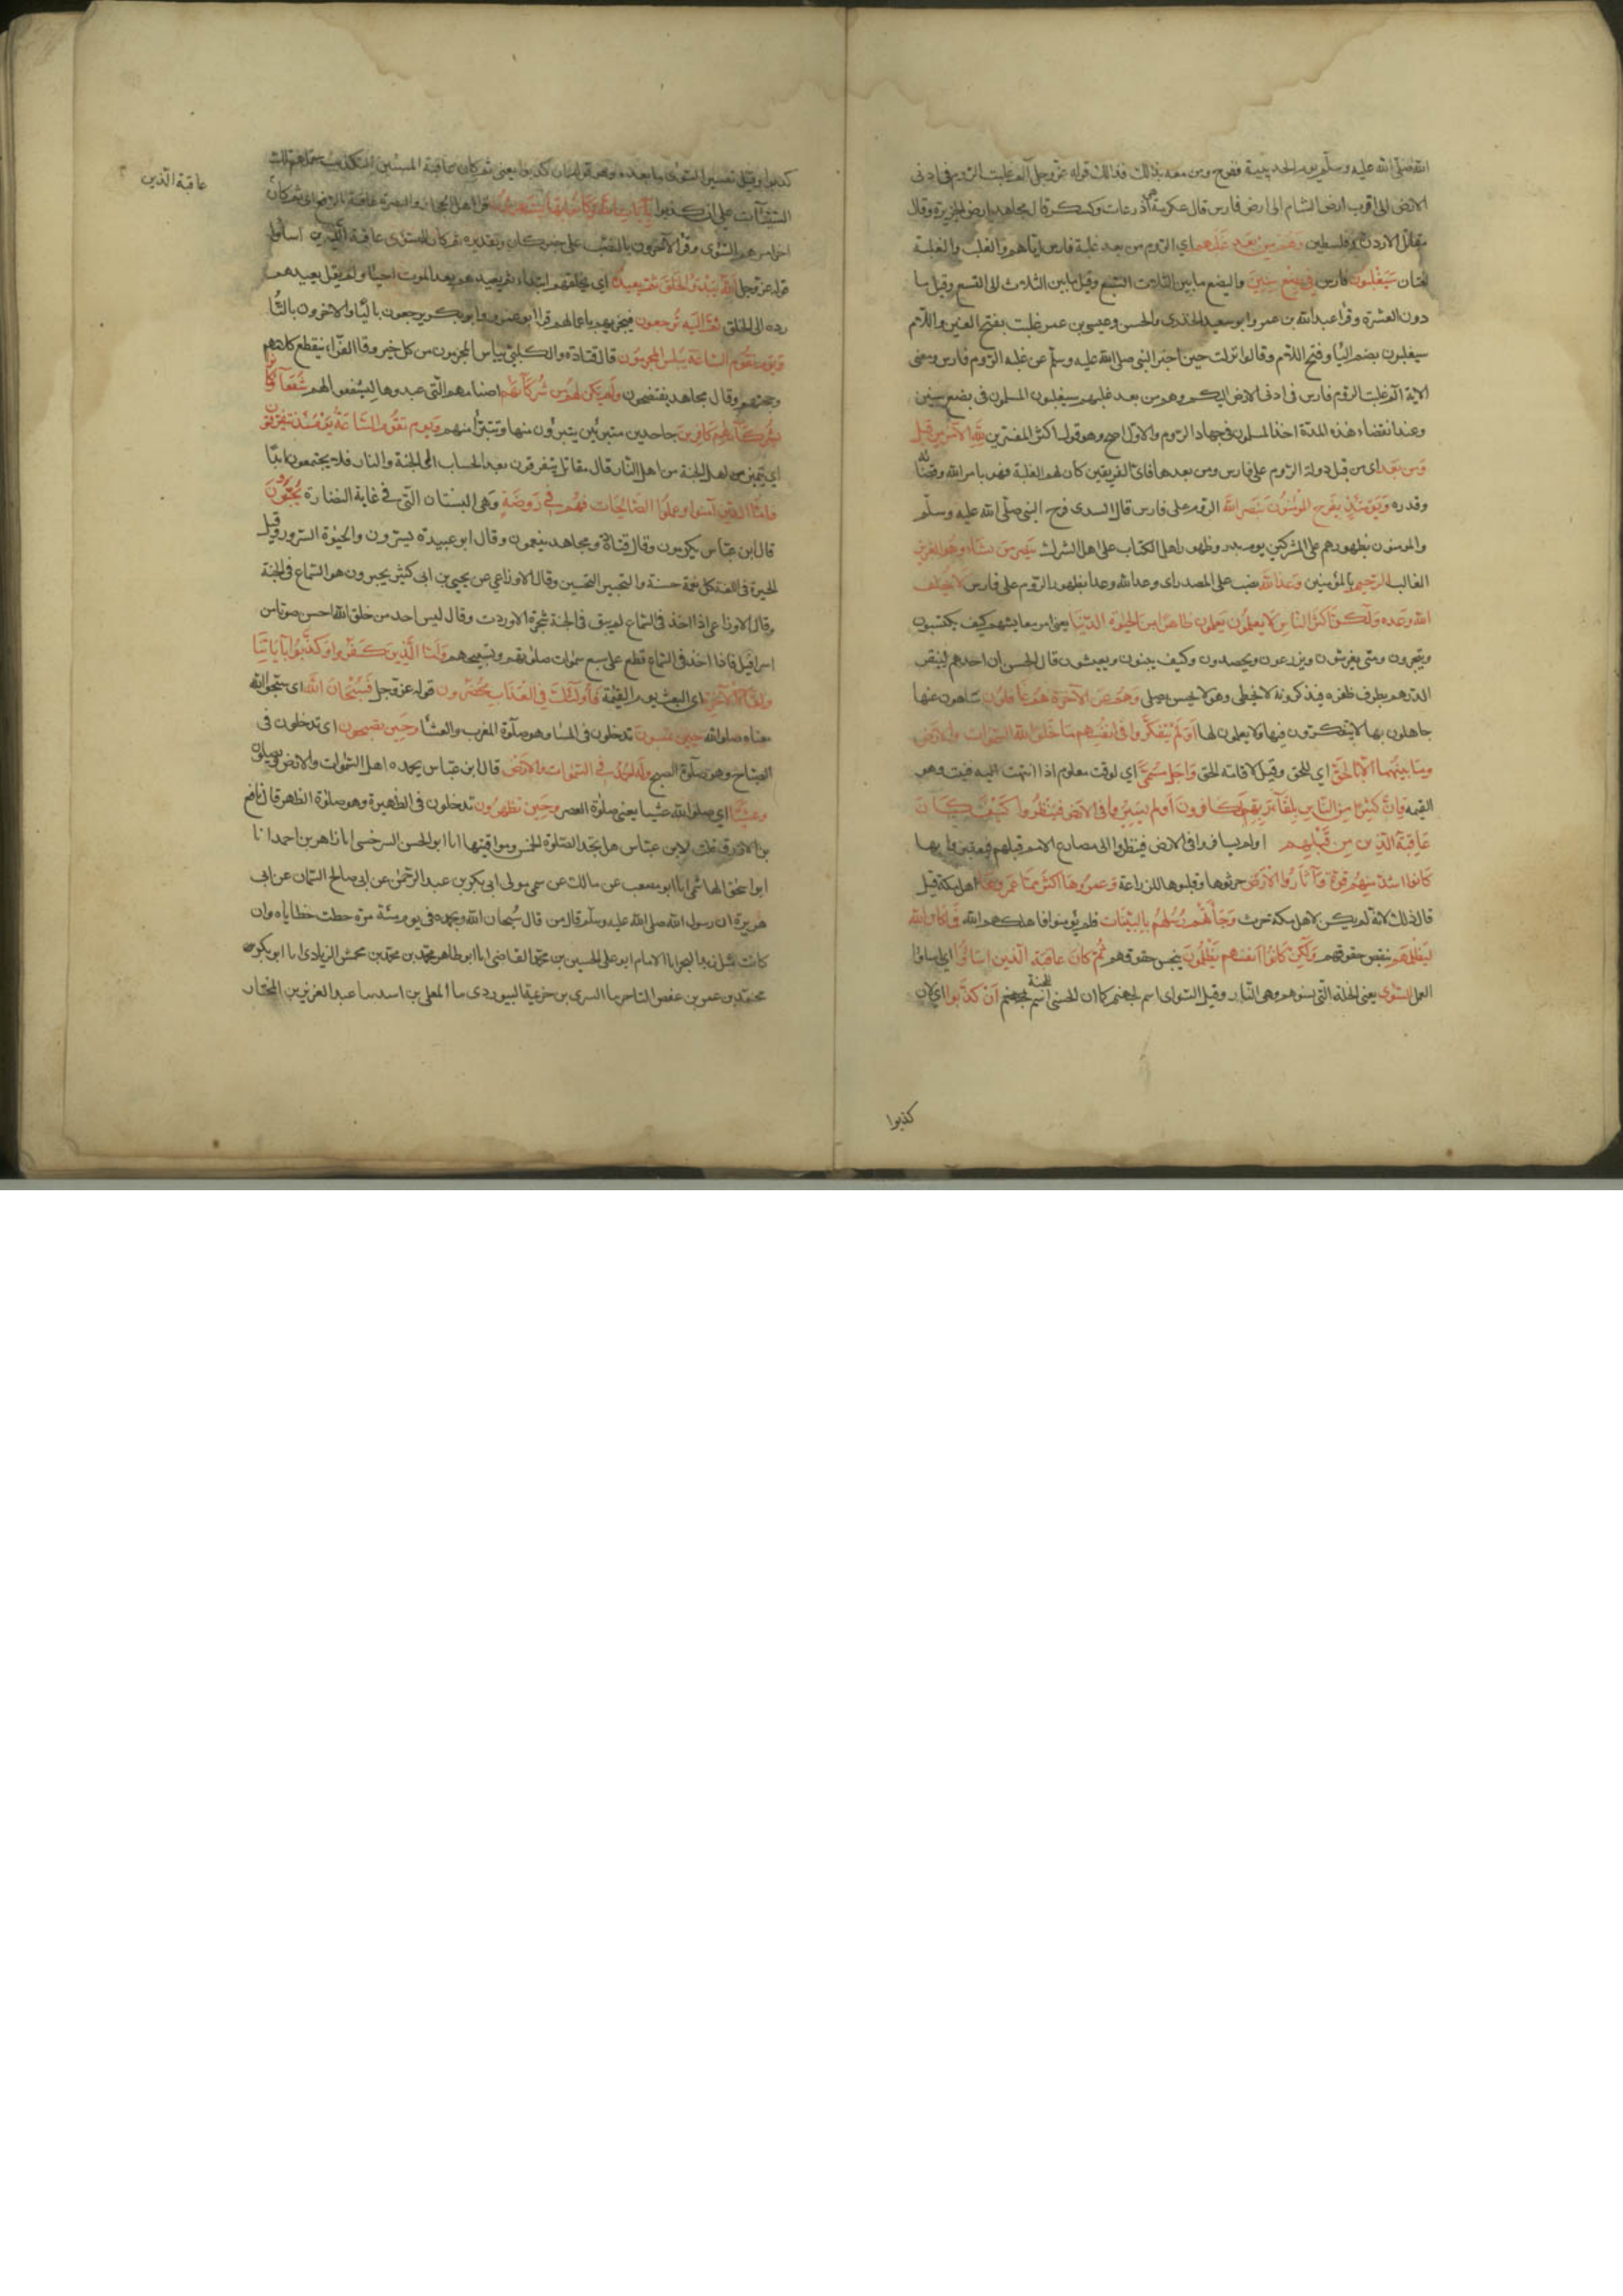 الله صلى الله عليه وسلم يوم الحديبية ففرح ومن معه بذلك فذلك قوله عز وجل الم غلبت الروم في ادنى
الارض اى اقرب ارض الشام الى ارض فارس قال عكرمة هي اذرعات وكسكر قال مجاهد ارض الجزيرة وقال
مقاتل الاردن وفلسطين وهم من بعد غلبهم اي الروم من بعد غلبة فارس اياهم والغلب والغلبة
لغتان سيغلبون فارس في بضع سنين والبضع ما بين الثلاث الى السبع وقيل ما بين الثلاث الى التسع وقيل ما
دون العشرة وقرا عبد الله بن عمر وابو سعيد الخدري والحسن وعيسى بن عمر غلبت بفتح الغين واللام
سيغلبون بضم اليا وفتح اللام وقالوا نزلت حين اخبر النبي صلى الله عليه وسلم عن غلبه الروم فارس ومعنى
الاية الم غلبت الروم فارس في ادنى الارض اليكم وهم من بعد غلبهم سيغلبون المسلمون في بضع سنين
وعند انقضاء هذه المدة اخذ المسلمون في جهاد الروم والاول اصح وهو قول اكثر المفسرين لله الامر من قبل
ومن بعد اى من قبل دولة الروم على فارس ومن بعدها فاي الفريقين كان لهم الغلبة فهو بامر الله وقضائه
وقدره ويومئذ يفرح المؤمنون بنصر الله الروم على فارس قال السدى فرح النبى صلى الله عليه وسلم
والمومنون بظهورهم على المشركين يوم بدر وظهور اهل الكتاب على اهل الشرك ينصر من يشاء وهو العزيز
الغالب الرحيم بالمؤمنين وعد الله نصب على المصدر اى وعد الله وعدا بظهور الروم على فارس لا يخلف
الله وعده ولكن اكثر الناس لا يعلمون يعلمون ظاهرا من الحيوة الدنيا يعني امر معايشهم كيف يكتسبون
ويتجرون ومتى يغرسون ويزرعون ويحصدون وكيف يبنون ويعيشون قال الحسن ان احدهم لينقر
الدرهم بطرف ظفره فيذكر وزنه لا يخطى وهو لا يحسن يصلى وهم عن الاخرة هم غافلون ساهون عنها
جاهلون بها لا يتفكرون فيها ولا يعملون لها اولم يتفكروا فى انفسهم ما خلق الله السموات والارض
وما بينهما الا بالحق اي للحق وقيل لاقامة الحق واجل مسمى اي لوقت معلوم اذا انتهت اليه فنيت وهو
القيمه وان كثيرا من الناس بلقاء ربهم لكافرون اولم يسيروا فى الارض فينظروا كيف كان
عاقبة الذين من قبلهم اولم يسافروا فى الارض فينظروا الى مصارع الامم قبلهم فيعتبروا بها
كانوا اشد منهم قوة واثاروا الارض حرثوها وقلبوها للزراعة وعمروها اكثر مما عمروها اهل مكة قيل
قال ذلك لانه لم يكن لاهل مكة حرث وجاءتهم رسلهم بالبينات فلم يؤمنوا فاهلكهم الله فما كان الله
ليظلمهم بنقص حقوقهم ولكن كانوا انفسهم يظلمون ببخس حقوقهم ثم كان عاقبة الذين اساؤا اي اساؤا
العمل السؤى يعني الخلة التى تسوهم وهي النار وقيل السواى اسم لجهنم كما ان الحسنى اسم للجنة ان كذبوا اي لان
كذبوا
عاقبة الذين
كذبوا وقيل تفسير السوئى ما بعده وهو قوله ان كذبوا يعني ثم كان عاقبة المسيئين التكذيب حملهم تلك
السيئات على ان كذبوا بآيات الله وكانوا بها يستهزؤن قرا اهل الحجاز والبصرة عاقبة بالرفع اى ثم كان
اخر امرهم السؤى وقرا الاخرون بالنصب على خبر كان وتقديره ثم كان السؤى عاقبة الذين اساؤا
قوله عز وجل الله يبدؤ الخلق ثم يعيده اي يخلقهم ابتداء ثم يعيدهم بعد الموت احياء ولم يقل يعيدهم
رده الى الخلق ثم اليه ترجعون فيجزيهم باعمالهم قرا ابو عمرو وابو بكر يرجعون باليا والاخرون بالتا
ويوم تقوم الساعة يبلس المجرمون قال قتادة والكلبي ييأس المجرمون من كل خير وقال الفراء ينقطع كلامهم
وحجتهم وقال مجاهد يفتضحون ولم يكن لهم من شركائهم اصنامهم التى عبدوها ليشفعوا لهم شفعآء وكانوا
بشركآئهم كافرين جاحدين متبرئين يتبرؤن منها وتتبرأ منهم ويوم تقوم الساعة يومئذ يتفرقون
اي يتميز اهل الجنة من اهل النار قال مقاتل يتفرقون بعد الحساب الى الجنة والنار فلا يجتمعون ابدا
فاما الذين آمنوا وعملوا الصالحات فهم في روضة وهى البستان التى فى غاية النضارة يحبرون
قال ابن عباس يكرمون وقال قتادة ومجاهد ينعمون وقال ابو عبيدة يسرون والحبرة السرور وقيل
الحبرة فى اللغة كل نعمة حسنة والتحبير التحسين وقال الاوزاعي عن يحيى بن ابى كثير يحبرون هو السماع فى الجنة
وقال الاوزاعى اذا اخذ فى السماع لم يبق فى الجنة شجرة الا وردت وقال ليس احد من خلق الله احسن صوتا من
اسرافيل فاذا اخذ فى السماع قطع على سبع سموات صلوتهم وتسبيحهم واما الذين كفروا وكذبوا بآياتنا
ولقاء الاخرة اى البعث يوم القيمة فأولئك في العذاب محضرون قوله عز وجل فسبحان الله اى سبحوا الله
معناه صلوا لله حين تمسون تدخلون فى المساء وهو صلوة المغرب والعشا وحين تصبحون اى تدخلون فى
الصباح وهو صلوة الصبح وله الحمد فى السموات والارض قال ابن عباس يحمده اهل السموات والارض ويصلون
وعشيا اي صلوا لله عشيا يعنى صلوة العصر وحين تظهرون تدخلون فى الظهيرة وهو صلوة الظهر قال نافع
بن الازرق قلت لابن عباس هل تجد الصلوة الخمس ومواقيتها انا ابو الحسن السرخسى انا زاهر بن احمد انا
ابو اسحق الهاشمى انا ابو مصعب عن مالك عن سمى مولى ابى بكر بن عبد الرحمن عن ابى صالح السمان عن ابى
هريرة ان رسول الله صلى الله عليه وسلم قال من قال سبحان الله وبحمده فى يوم مئة مرة حطت خطاياه وان
كانت مثل زبد البحر انا الامام ابو على الحسين بن محمد القاضى انا ابو طاهر محمد بن محمد بن محمش الزيادى انا ابو بكر
محمد بن عمر بن حفص التاجر نا السرى بن خزيمة البيوردى نا المعلى بن اسد نا عبد العزيز بن المختار